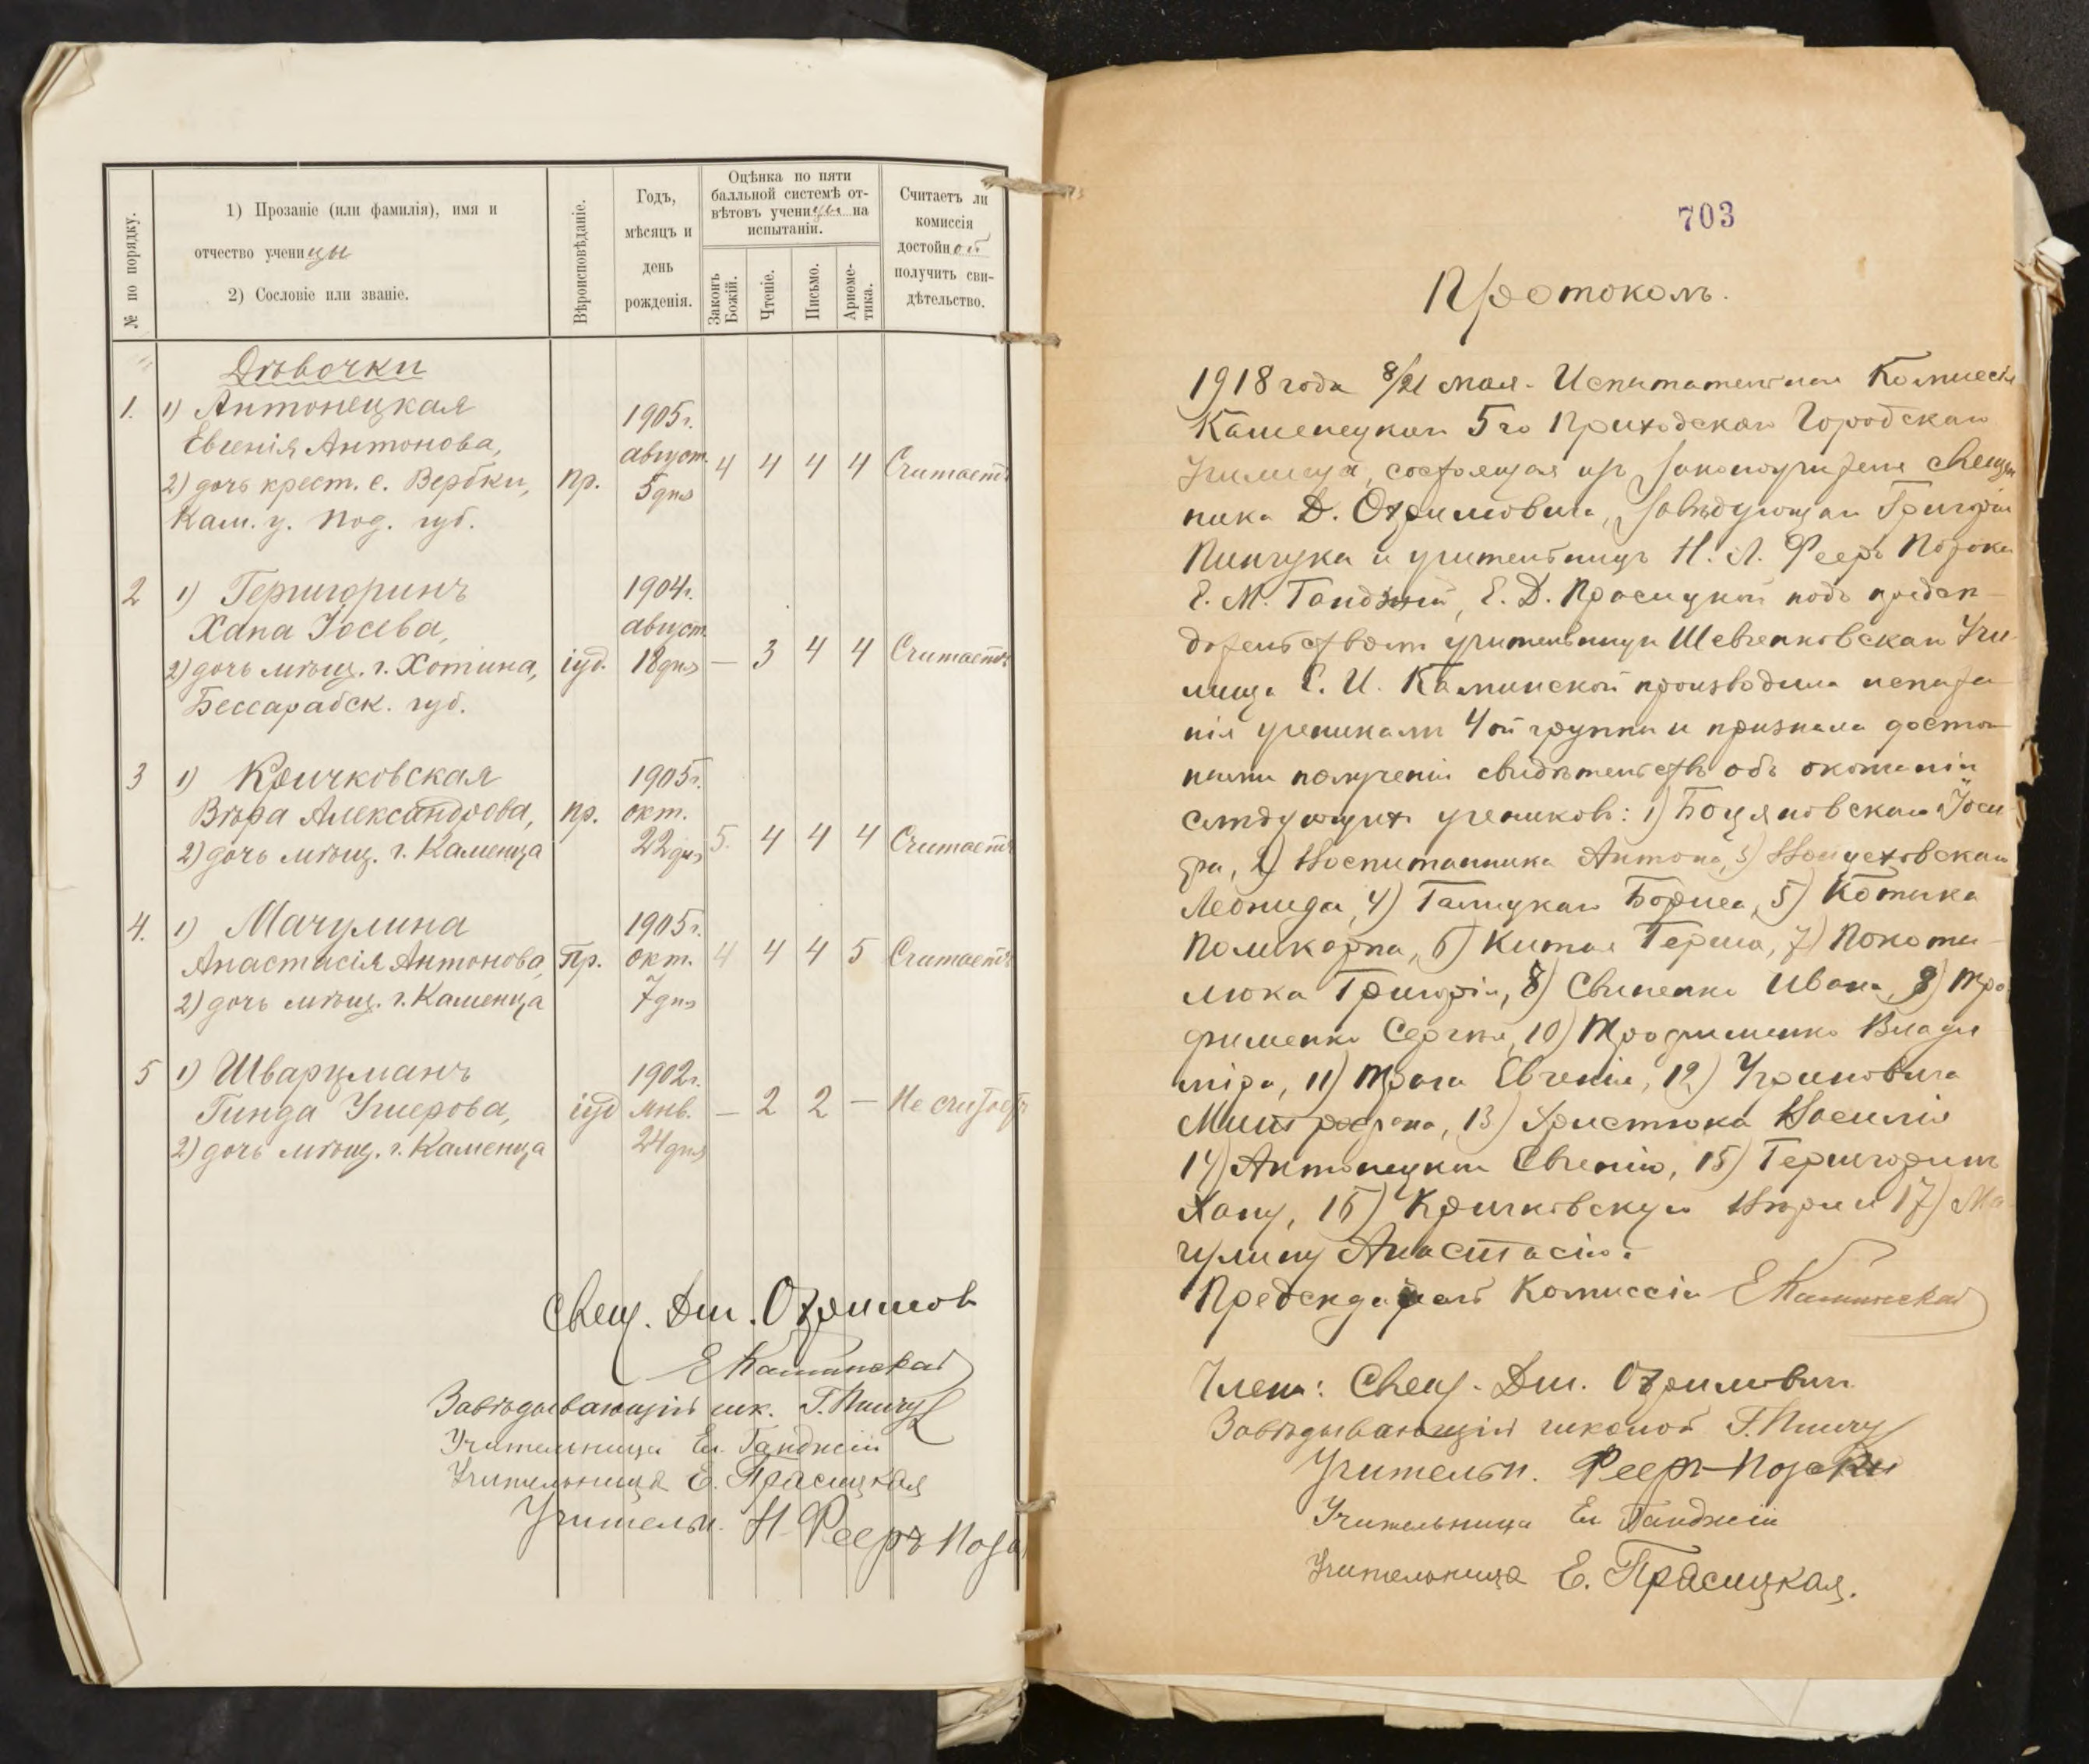 № по порядку.
1) Прозаніе (или фамилія), имя и
отчество ученицы
2) Сословіе или званіе.
Вѣроисповѣданіе.
Годъ,
мѣсяцъ и
день
рожденія.
Оцѣнка по пяти
балльной системѣ от-
вѣтовъ ученицы на
испытаніи.
Законъ
Божій.
Чтеніе.
Письмо.
Ариѳме-
тика.
Считаетъ ли
комиссія
достойной
получить сви-
дѣтельство.
Дѣвочки
1. 1) Антонецкая
Евгенія Антонова,
2) дочь крест. с. Вербки,
Кам. у. Под. губ.
пр.
1905 г.
август.
5 дня
4 4 4 4 Считаетъ
2 1) Гершгоринъ
Хана Іосева,
2) дочь мѣщ. г. Хотина,
Бессарабск. губ.
іуд.
1904 г.
август.
18 дня
— 3 4 4 Считаетъ
3 1) Кричковская
Вѣра Александрова,
2) дочь мѣщ. г. Каменца
пр.
1905 г.
окт.
22 дня
5. 4 4 4 Считаетъ
4. 1) Мачулина
Анастасія Антонова,
2) дочь мѣщ. г. Каменца
Пр.
1905 г.
окт.
7 дня
4 4 4 5 Считаетъ
5 1) Шварцманъ
Гинда Ушерова,
2) дочь мѣщ. г. Каменца
іуд
1902 г.
янв.
24 дня
— 2 2 — Не считаетъ
Свящ. Дм. Охримов
Е Каминская
Завѣдывающій шк. Г. Пинчу
Учительница Ел. Ганджій
Учительница Е. Прасицкая
Учительн. Н. Фееръ
703
Протоколъ.
1918 года 8/21 мая. Испытательная Комиссія
Каменецкаго 5го Приходскаго Городскаго
Училища, состоящая изъ законоучителя священ
ника Д. Охримовича, завѣдующаго Григорія
Пинчука и учительницъ Н. Л. Фееръ
Е. М. Ганджій, Е. Д. Прасицкой подъ предсѣ-
дательствомъ учительницы Шевченковскаго Учи-
лища Е. И. Каминской производила испыта-
нія ученикамъ 4ой группы и признала достой-
ными полученія свидѣтельствъ объ окончаніи
слѣдующихъ учениковъ: 1) Боцяновскаго Іоси-
фа, 2) Воспитанника Антона, 3) Войцеховскаго
Леонида, 4) Галицкаго Бориса, 5) Котика
Поликарпа, 6) Китая Герша, 7) Покоти-
люка Григорія, 8) Свиненко Ивана, 9) Тро-
фименко Сергѣя, 10) Трофименко Влади-
міра, 11) Трача Евгенія, 12) Угриновича
Митрофана, 13) Христюка Василія
14) Антонецкую Евгенію, 15) Гершгоринъ
Хану, 16) Кричковскую Вѣру и 17) Ма
чулину Анастасію.
Предсѣдатель Комиссіи Е Каминская
Члены: Свящ. Дм. Охримович
Завѣдывающій школой Г. Пинчу
Учительн. Фееръ
Учительница Ел Ганджій
Учительница Е. Прасицкая.